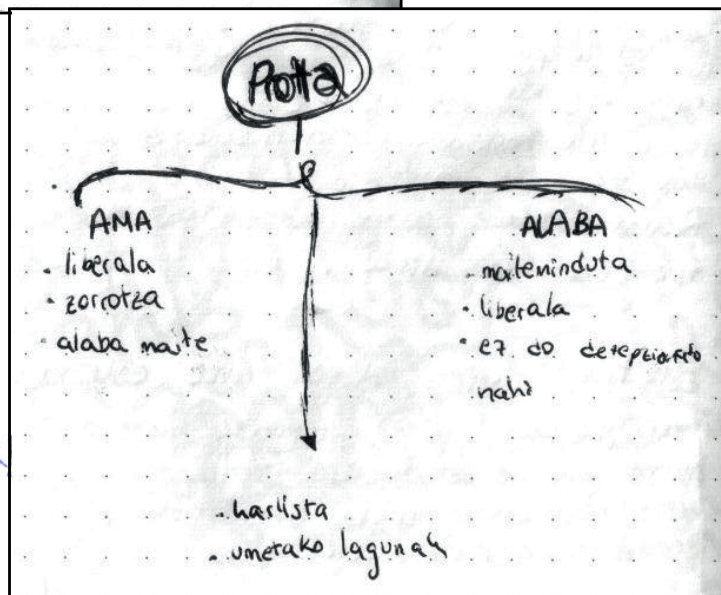 Protta
AMA
. liberala
. zorrotza
. alaba maite
ALABA
. maiteninduta
. liberala
. ez do
nahi
. karlista
. umetako lagunak